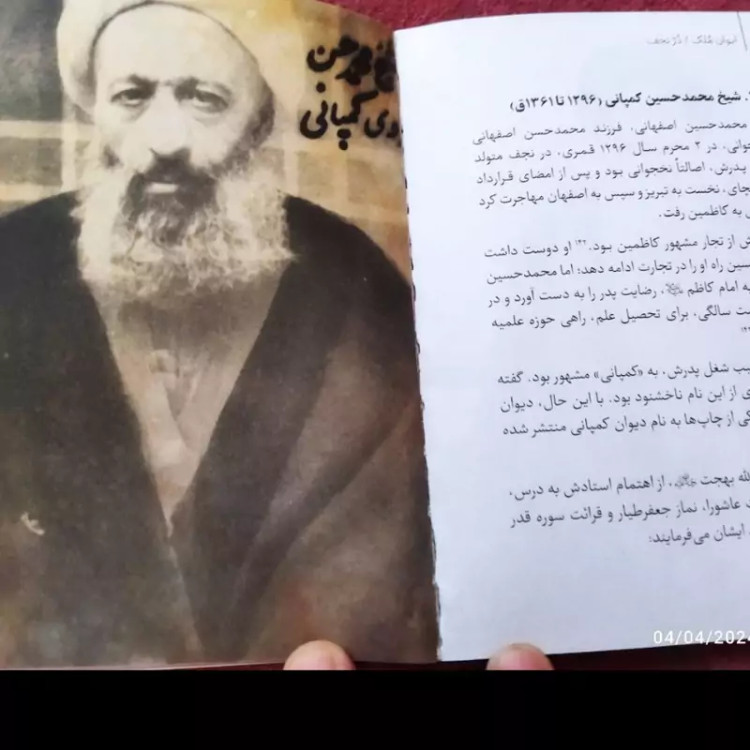 ایوان مُلک / دُرّ نجف
شیخ محمدحسین کمپانی (۱۲۹۶ تا ۱۳۶۱ق)
محمدحسین اصفهانی، فرزند محمدحسن اصفهانی
در ۲ محرم سال ۱۲۹۶ قمری، در نجف متولد
پدرش، اصالتاً نخجوانی بود و پس از امضای قرارداد
نخست به تبریز و سپس به اصفهان مهاجرت کرد
به کاظمین رفت.
از تجار مشهور کاظمین بود. او دوست داشت
راه او را در تجارت ادامه دهد؛ اما محمدحسین
به امام کاظم، رضایت پدر را به دست آورد و در
سالگی، برای تحصیل علم، راهی حوزه علمیه
شغل پدرش، به «کمپانی» مشهور بود. گفته
از این نام ناخشنود بود. با این حال، دیوان
از چاپ‌ها به نام دیوان کمپانی منتشر شده
بهجت، از اهتمام استادش به درس،
عاشورا، نماز جعفر طیار و قرائت سوره قدر
ایشان می‌فرمایند:
کمپانی
04/04/2024